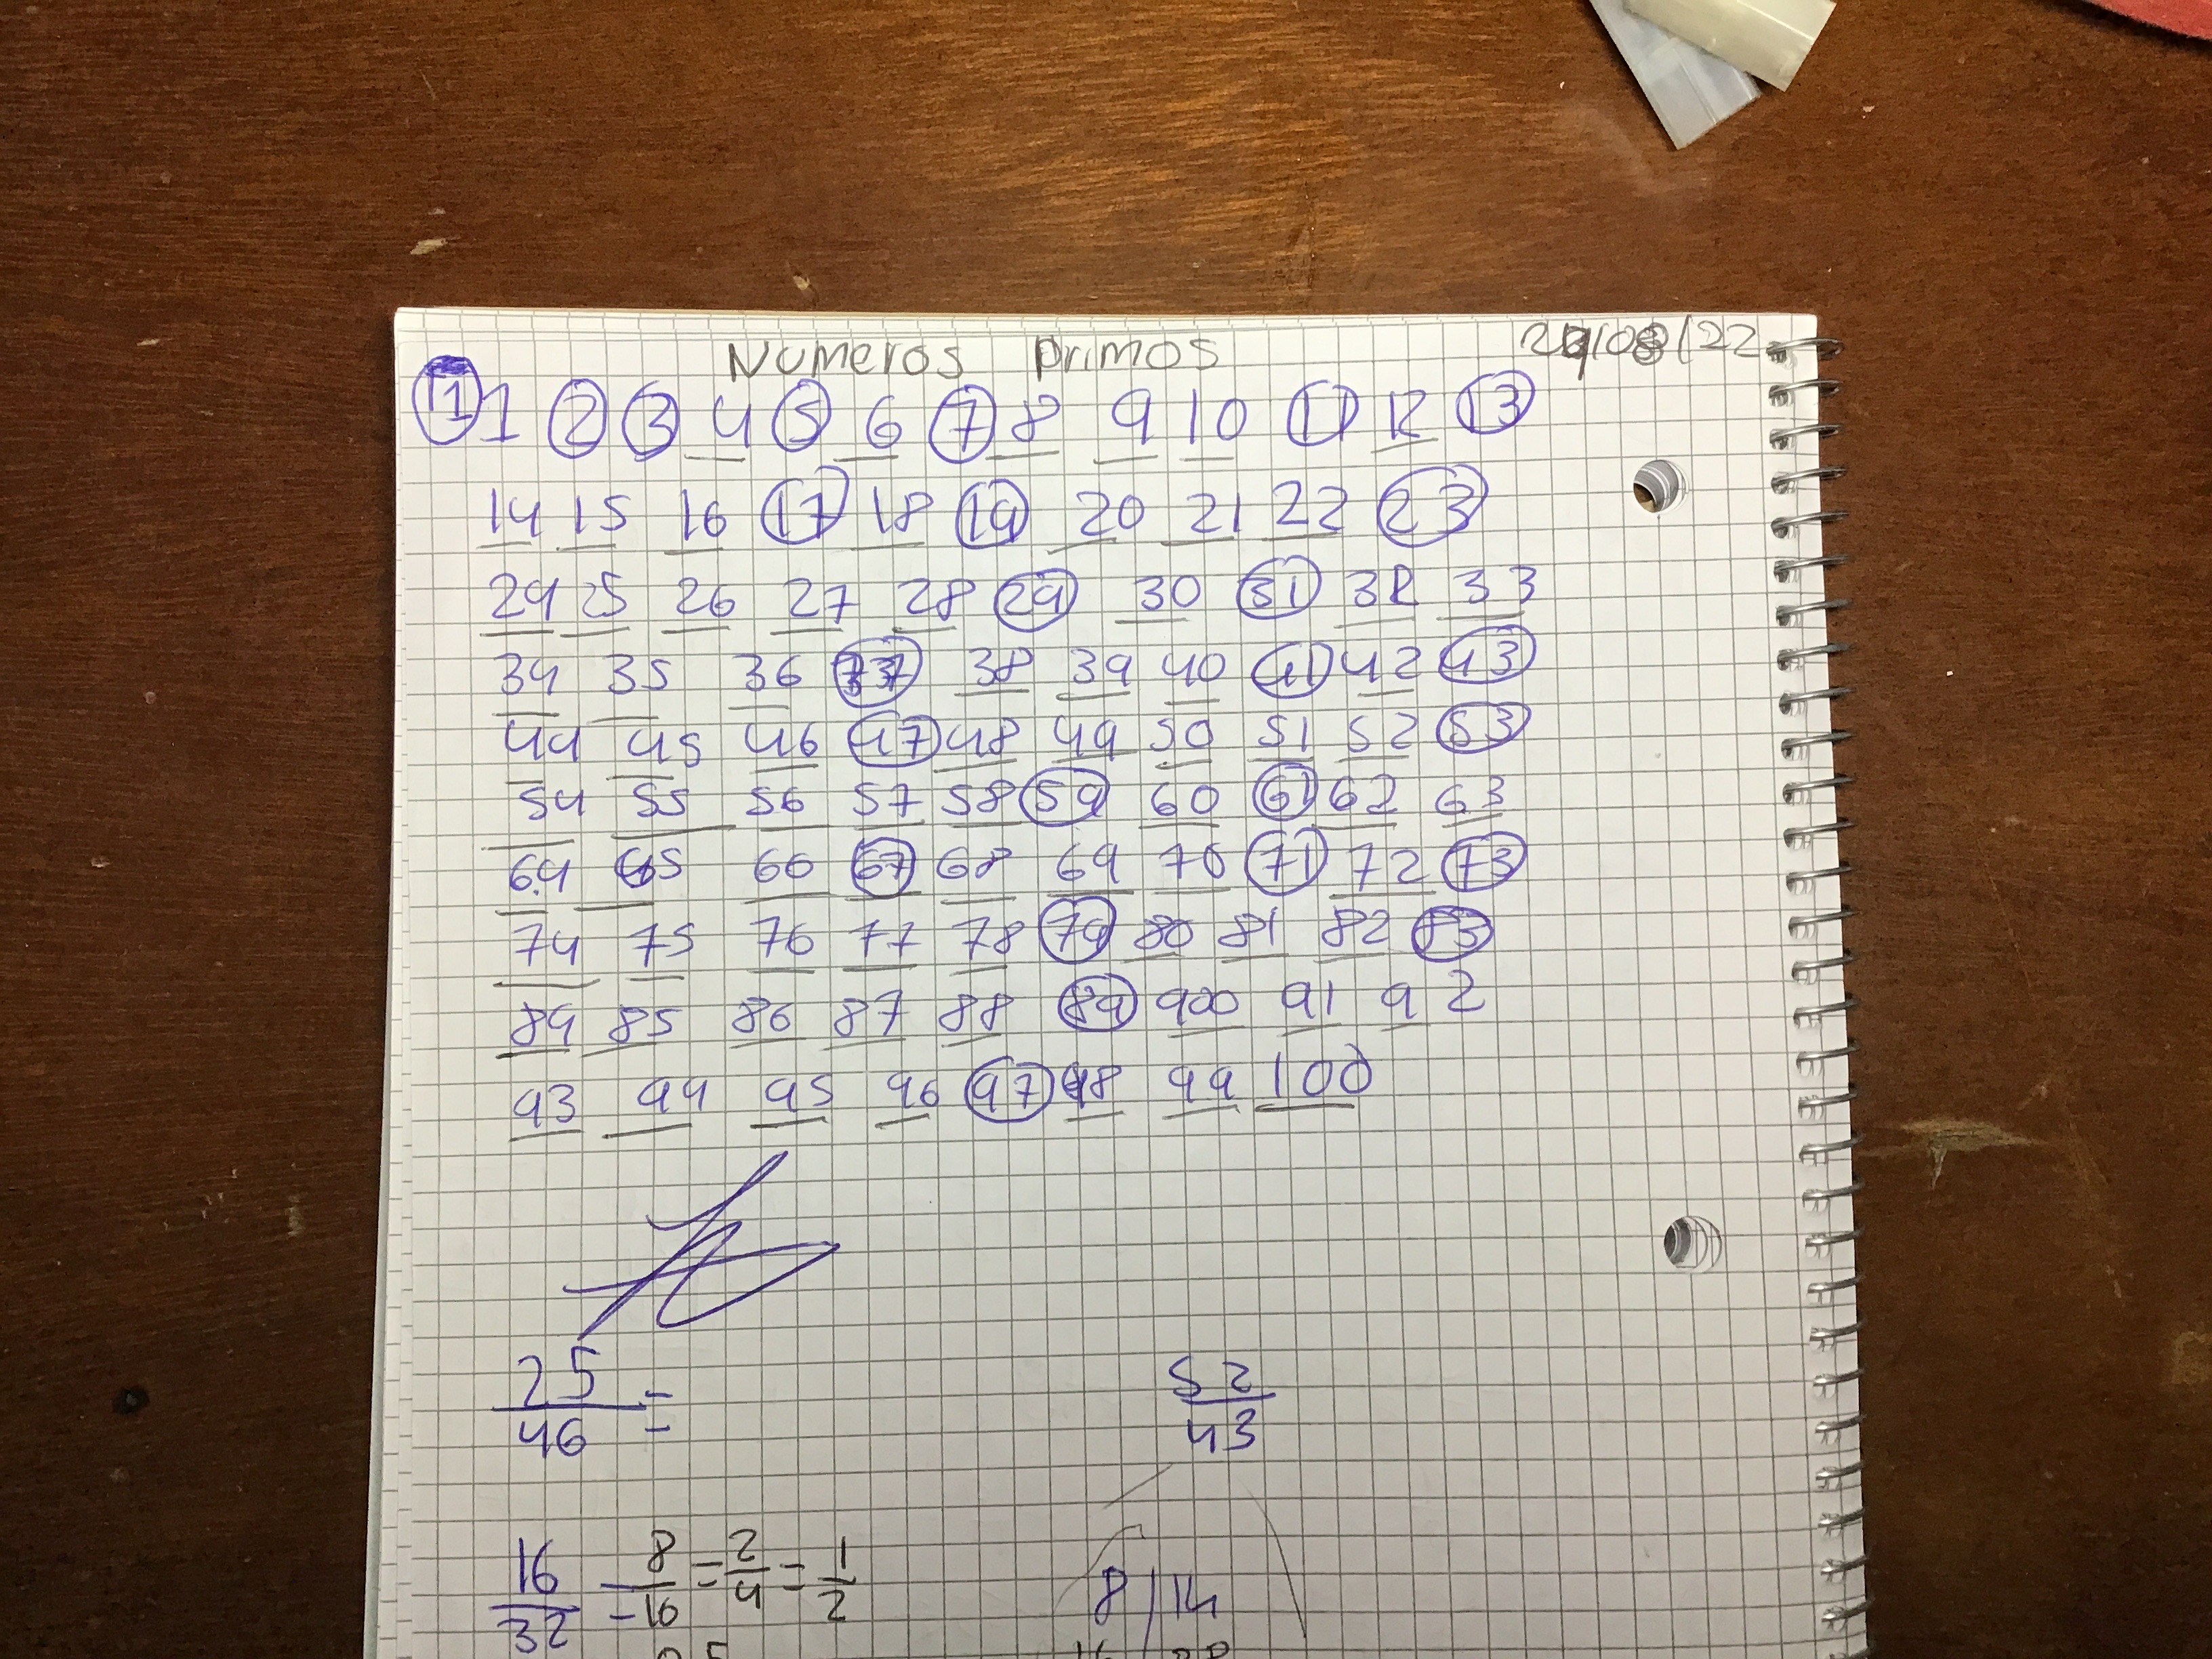 Numeros primos
1 1 2 3 4 5 6 7 8 9 10 11 12 13
14 15 16 17 18 19 20 21 22 23
24 25 26 27 28 29 30 31 32 33
34 35 36 37 38 39 40 41 42 43
44 45 46 47 48 49 50 51 52 53
54 55 56 57 58 59 60 61 62 63
64 65 66 67 68 69 70 71 72 73
74 75 76 77 78 79 80 81 82 83
84 85 86 87 88 89 900 91 92
93 94 95 96 97 98 99 100
25/46 =
52/43
16/32 = 8/16 = 2/4 = 1/2
8/14